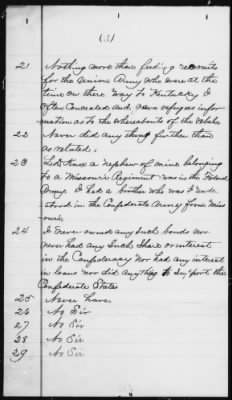 (3)
21 Nothing more than feeding recruits
for the Union Army who were at the
time on there way to Kentucky I
often Concealed and gave refugees infor
mation as to the whereabouts of the Rebels.
22 Never did any thing further than
as related.
23 a nephew of mine belonging
to a Missouri Regiment was in the Federal
Army. I had a brother who was I unde
stood in the Confederate Army from Miss
ouri.
24 I never owned any such bonds nor
never had any Such Share or interest
in the Confederacy Nor had any interest
in loans nor did anything to Support the
Confederate States
25 Never have
26 No Sir
27 No Sir
28 No Sir
29 No Sir